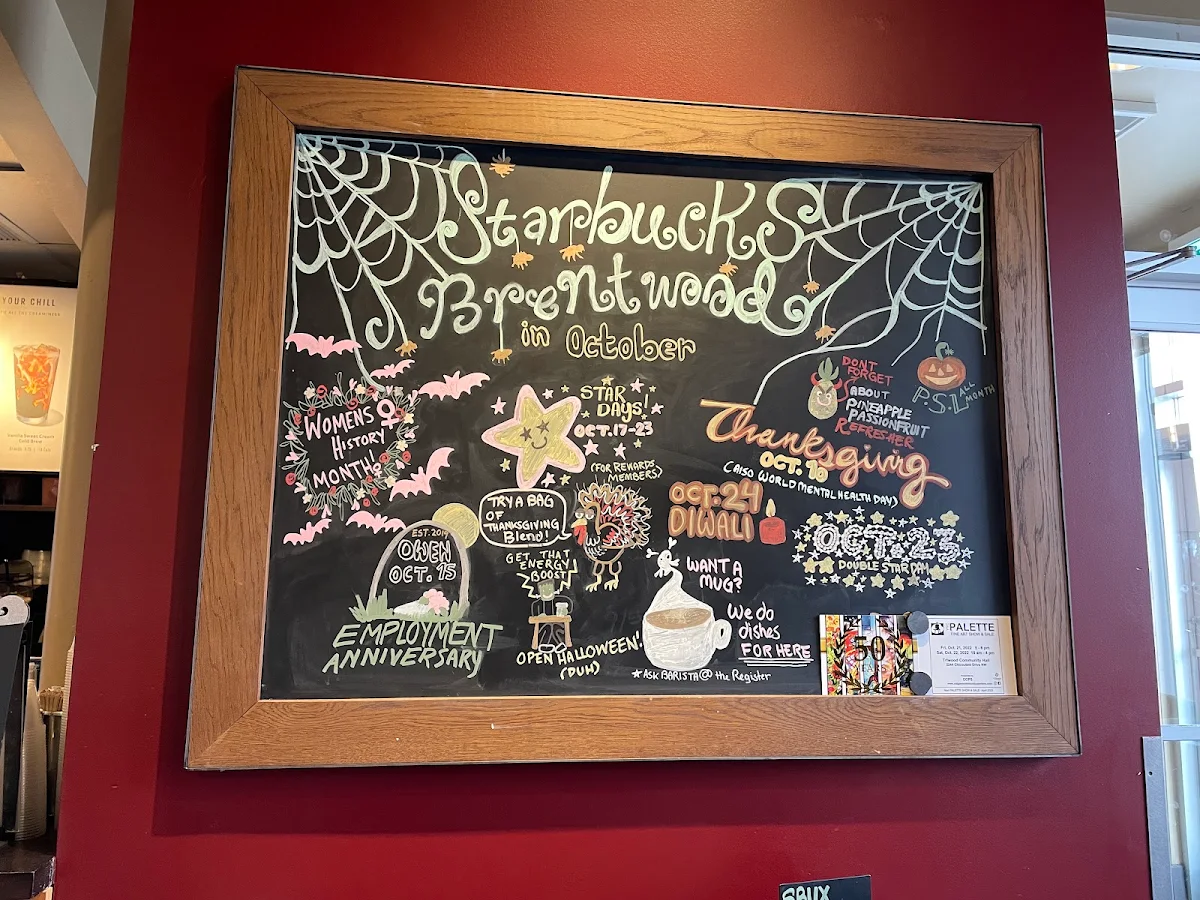 Starbucks
Brentwood
in October
WOMENS
HISTORY
MONTH!
STAR
DAYS!
OCT.17-23
(FOR REWARDS
MEMBERS)
DONT
FORGET
ABOUT
PINEAPPLE
PASSIONFRUIT
REFRESHER
P.S.L ALL
MONTH
Thanksgiving
OCT. 10
(ALSO WORLD MENTAL HEALTH DAY)
TRY A BAG
OF
THANKSGIVING
Blend!
OCT. 24
DIWALI
OCT. 23
DOUBLE STAR DAY
EST. 2019
OWEN
OCT. 15
EMPLOYMENT
ANNIVERSARY
GET THAT
ENERGY
BOOST
OPEN HALLOWEEN!
(DUH)
WANT A
MUG?
We do
dishes
FOR HERE
ASK BARISTA @ the Register
50
PALETTE
FINE ART SHOW & SALE
Fri, Oct. 21, 2022
Sat, Oct. 22, 2022
Triwood Community Hall
YOUR CHILL